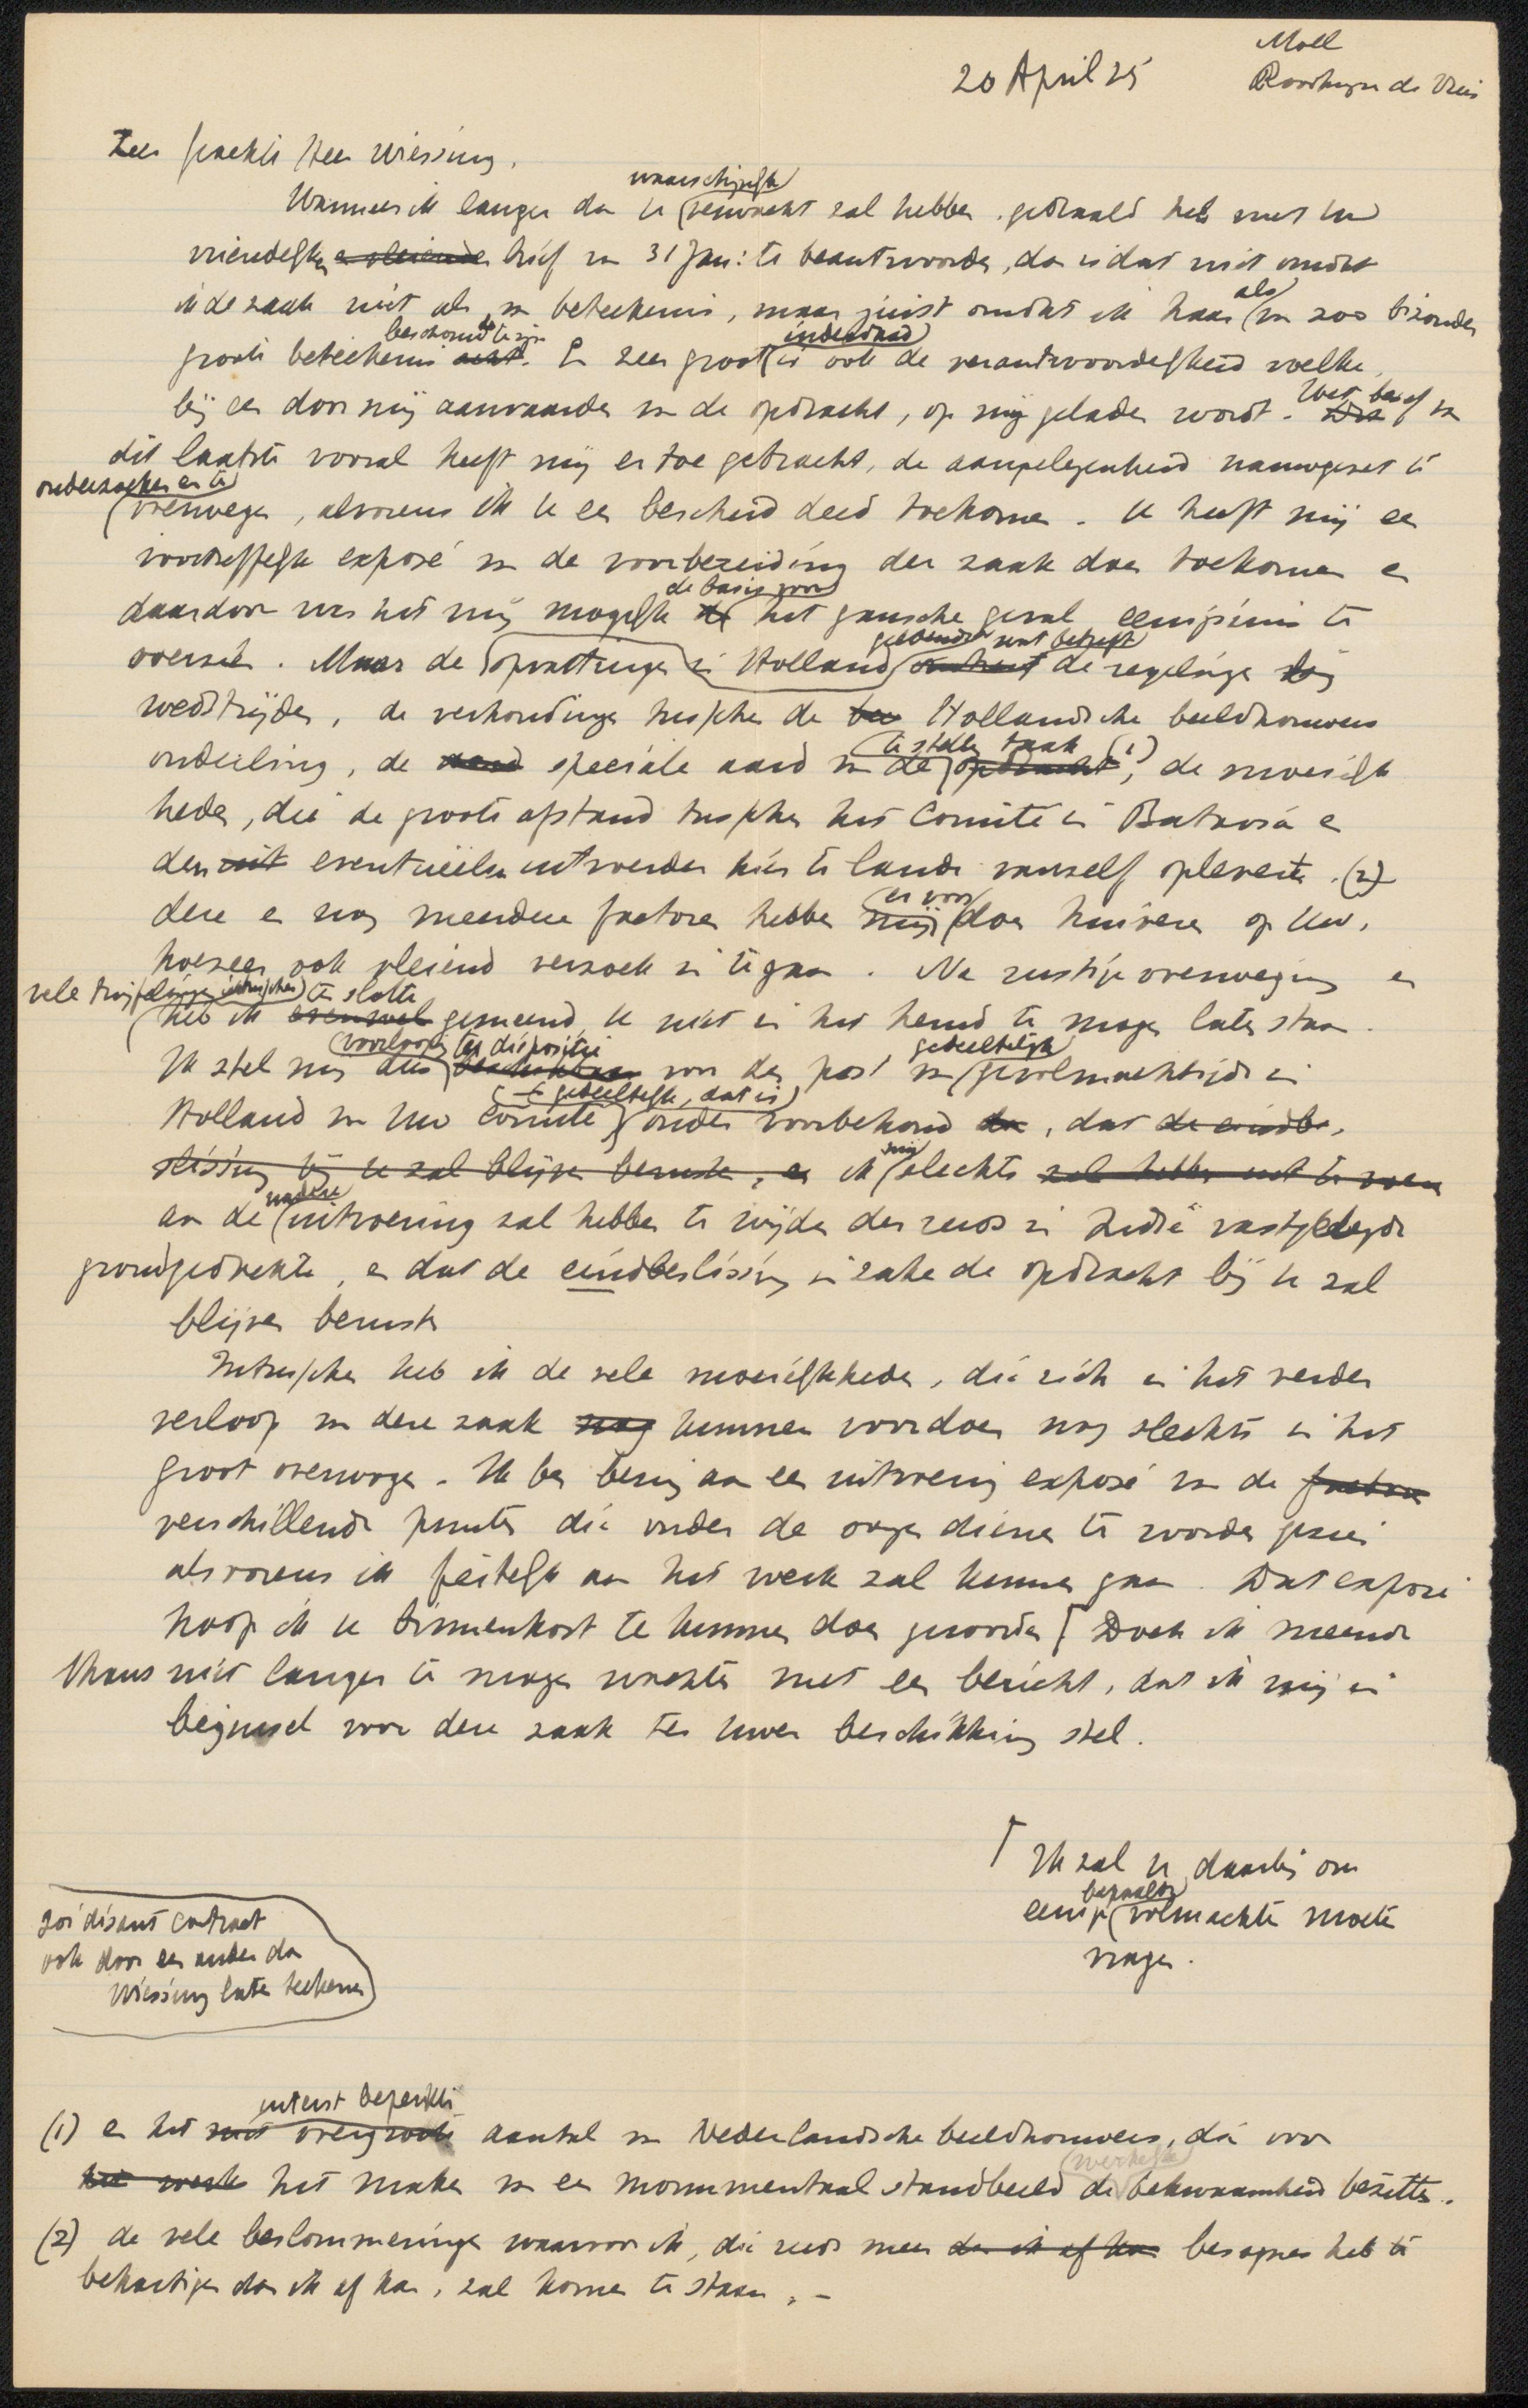 Moll
20 April 25
Roorhuyzen de Vries
Zeer geachte Heer Wiessing,
waarschijnlijk
Wanneer ik langer dan U verwacht zal hebben, gedraald heb met Uw
vriendelijken en vleienden brief van 31 Jan: te beantwoorden, dan is dat niet omdat
als
ik de zaak niet als van beteekenis, maar juist omdat ik haar van zoo bizonder
beschouwd te zijn inderdaad
groote beteekenis acht. En zeer groot is ook de verantwoordelijkheid welke,
Het besef
bij een door mij aanvaarden van de opdracht, op mij geladen wordt. Dra van
dit laatste vooral heeft mij er toe gebracht, de aangelegenheid nauwgezet te
onderzoeken en te
overwegen, alvorens ik U een bescheid deed toekomen. U heeft mij een
voortreffelijk exposé van de voorbereiding der zaak doen toekomen en
de basis voor
daardoor was het mij mogelijk het gansche geval eenigszins te
geldende wat betreft
overzien. Maar de opvattingen in Holland omtrent de regelingen bij
wedstrijden, de verhoudingen tusschen de Hollandsche beeldhouwers
te stellen taak (1)
onderling, de aard speciale aard van de opdracht, de moeielijk
heden, die de groote afstand tusschen het Comité in Batavia en
den eventueelen uitvoerder hier te lande vanzelf oplevert. (2)
er voor
deze en nog meerdere factoren hebben mij doen huiveren op Uw,
hoezeer ook vleiend verzoek in te gaan. Na rustige overweging en
vele twijfelingen intusschen te slotte
heb ik evenwel gemeend U niet in het hemd te mogen laten staan.
voorloopig ter dispositie gedeeltelijk
Ik stel mij dus beschikbaar voor den post van gevolmachtigde in
(- gedeeltelijk, dat is)
Holland van Uw Comité onder voorbehoud, dat de eindbe-
mij
slissing bij U zal blijven berusten, en ik slechts zal hebben uit te voeren
nadere
aan de uitvoering zal hebben te wijden der reeds in Indië vastgelegde
grondgedachte, en dat de eindbeslissing in zake de opdracht bij U zal
blijven berusten
Intusschen heb ik de vele moeielijkheden, die zich in het verder
verloop van deze zaak nog kunnen voordoen nog slechts in het
groot overwogen. Ik ben bezig aan een uitvoerig exposé van de factoren
verschillende punten die onder de oogen dienen te worden gezien
alvorens ik feitelijk aan het werk zal kunnen gaan. Dat exposé
hoop ik U binnenkort te kunnen doen geworden ⌈ Doch ik meende
thans niet langer te mogen wachten met een bericht, dat ik mij in
beginsel voor deze zaak ter Uwer beschikking stel.
⌈ Ik zal U daarbij om
bepaalde
eenige volmachten moeten
vragen.
soi disant contract
ook door een ander dan
Wiessing laten teekenen
uiterst beperkte
(1) en het niet overgroote aantal van Nederlandsche beeldhouwers, die voor
(werkelijke)
het werk het maken van een monumentaal standbeeld de bekwaamheid bezitten.
(2) de vele beslommeringen waarvoor ik, die reeds meer dan ik af kan besognes heb te
behartigen dan ik af kan, zal komen te staan. –